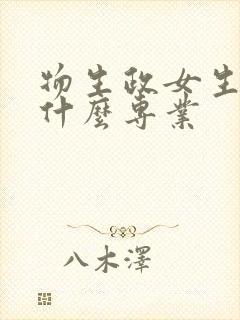 物生政女生
什麼專業
八木澤